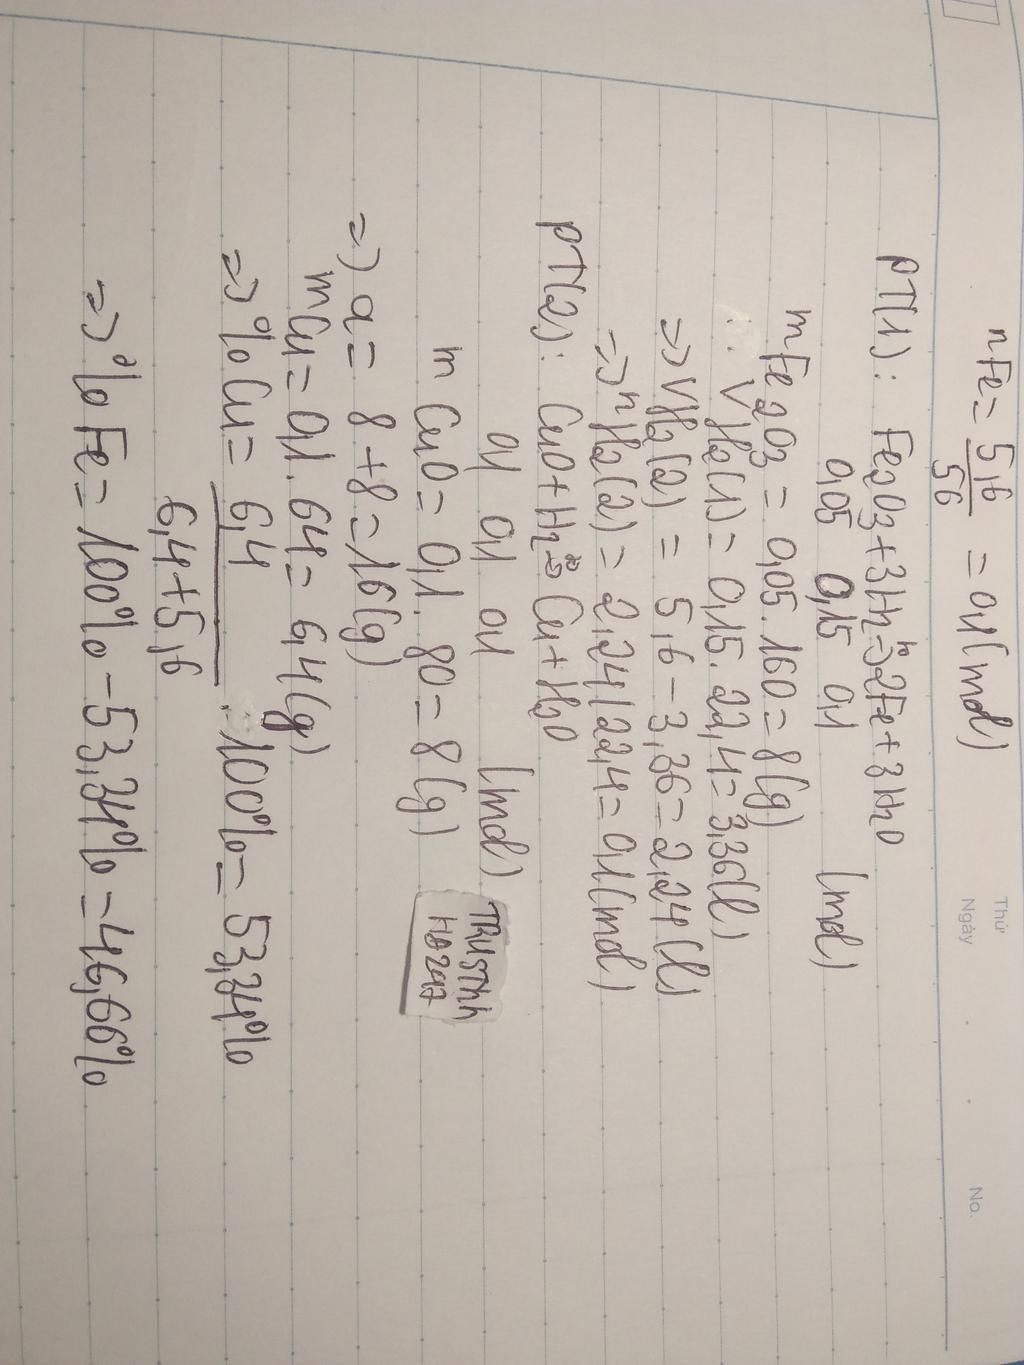 Thứ
Ngày
No.
nFe = 5,6/56 = 0,1 (mol)
PT(1): Fe2O3 + 3H2 -tº-> 2Fe + 3H2O
0,05 0,15 0,1 (mol)
mFe2O3 = 0,05.160 = 8(g)
VH2(1) = 0,15.22,4 = 3,36(l)
=> VH2(2) = 5,6 - 3,36 = 2,24(l)
=> nH2(2) = 2,24/22,4 = 0,1(mol)
PT(2): CuO + H2 -tº-> Cu + H2O
0,1 0,1 0,1 (mol)
mCuO = 0,1.80 = 8(g)
=> a = 8+8 = 16(g)
mCu = 0,1.64 = 6,4(g)
=> %Cu = 6,4/6,4+5,6 . 100% = 53,34%
=> %Fe = 100% - 53,34% = 46,66%